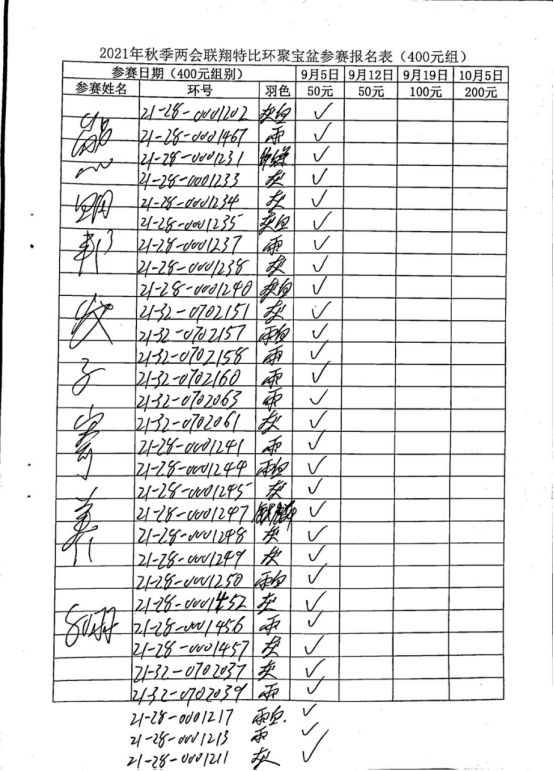 2021年秋季两会联翔特比环聚宝盆参赛报名表（400元组）
参赛日期（400元组别） 9月5日 9月12日 9月19日 10月5日
参赛姓名 环号 羽色 50元 50元 100元 200元
21-28-0001202 灰白 ✓
21-28-0001467 雨 ✓
21-28-0001231 ✓
21-28-0001233 灰 ✓
21-28-0001234 灰 ✓
21-28-0001235 灰白 ✓
21-28-0001237 雨 ✓
21-28-0001238 灰 ✓
21-28-0001240 灰白 ✓
21-32-0702151 灰 ✓
21-32-0702157 雨白 ✓
21-32-0702158 雨 ✓
21-32-0702160 雨 ✓
21-32-0702063 雨 ✓
21-32-0702061 灰 ✓
21-28-0001241 雨 ✓
21-28-0001244 雨白 ✓
21-28-0001245 灰 ✓
21-28-0001247 ✓
21-28-0001248 灰 ✓
21-28-0001249 灰 ✓
21-28-0001250 雨白 ✓
21-28-0001452 灰 ✓
21-28-0001456 雨 ✓
21-28-0001457 灰 ✓
21-32-0702037 灰 ✓
21-32-0702039 雨 ✓
21-28-0001217 雨白. ✓
21-28-0001213 雨 ✓
21-28-0001211 灰 ✓